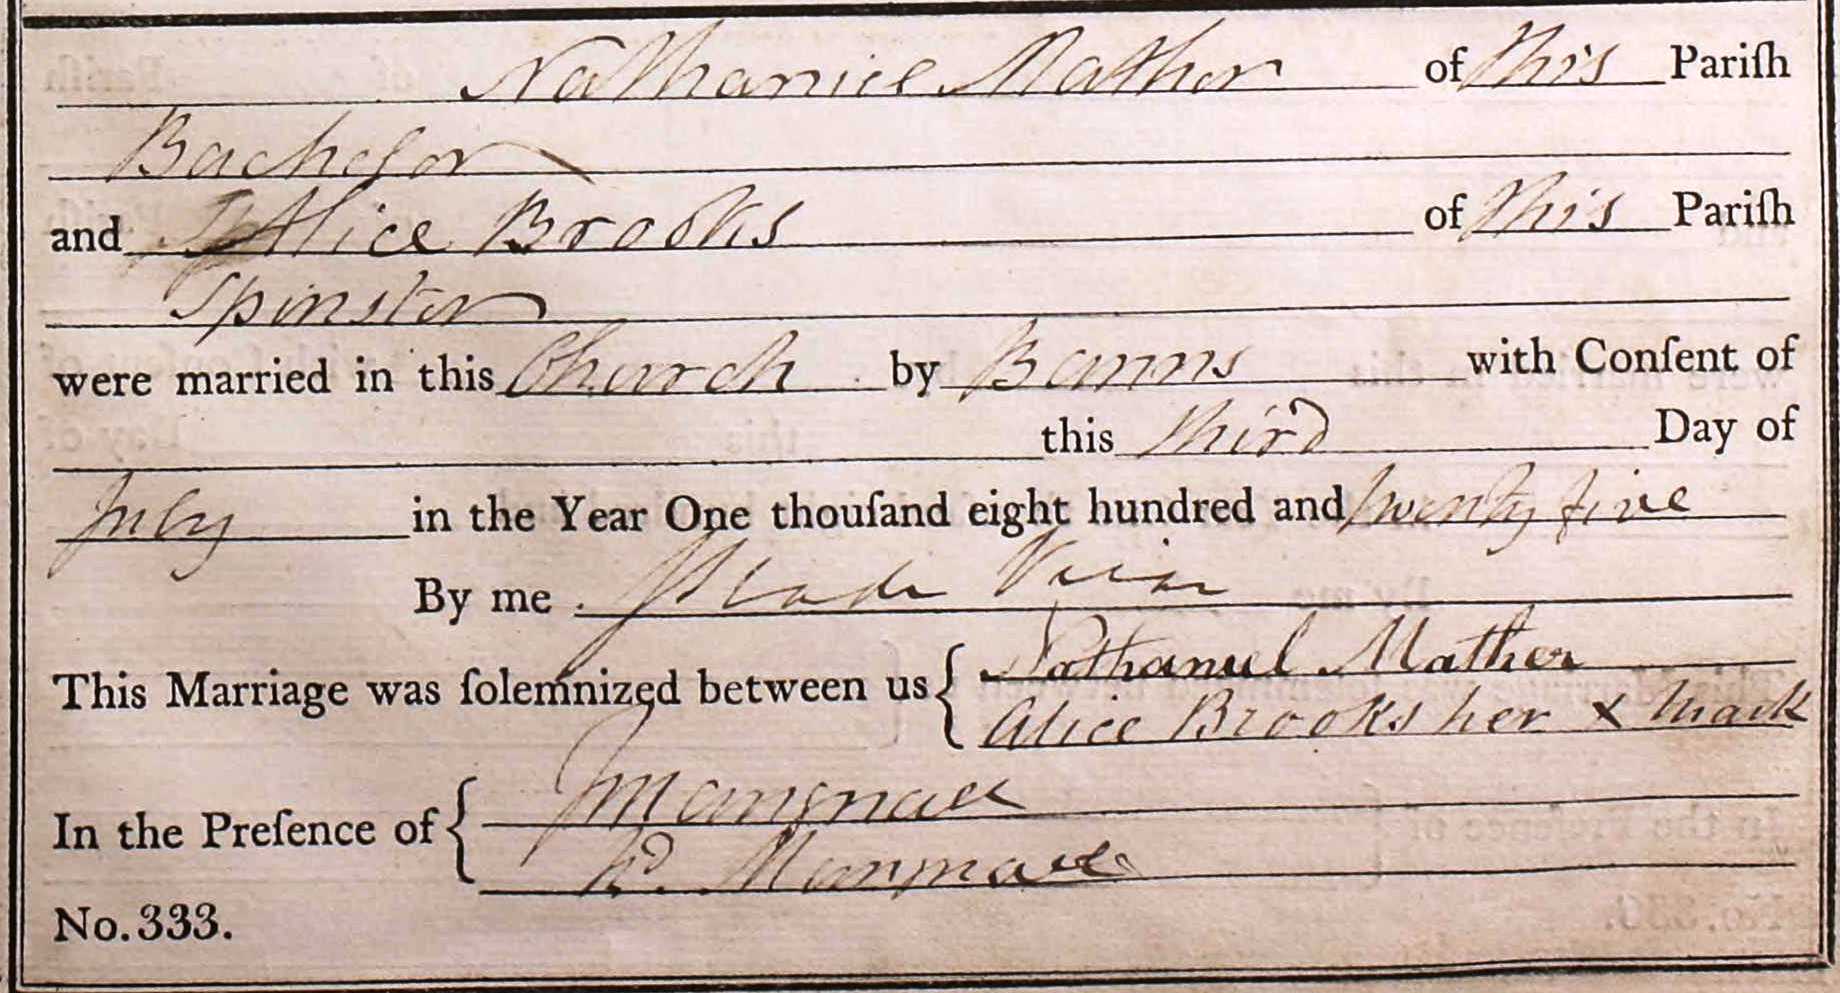 Nathaniel Mather of this Pariſh
Bachelor
and Alice Brooks of this Pariſh
Spinster
were married in this Church by Banns with Conſent of
this third Day of
July in the Year One thouſand eight hundred and twenty five
By me Vicar
This Marriage was ſolemnized between us { Nathaniel Mather
Alice Brooks her x mark
In the Preſence of {
No. 333.